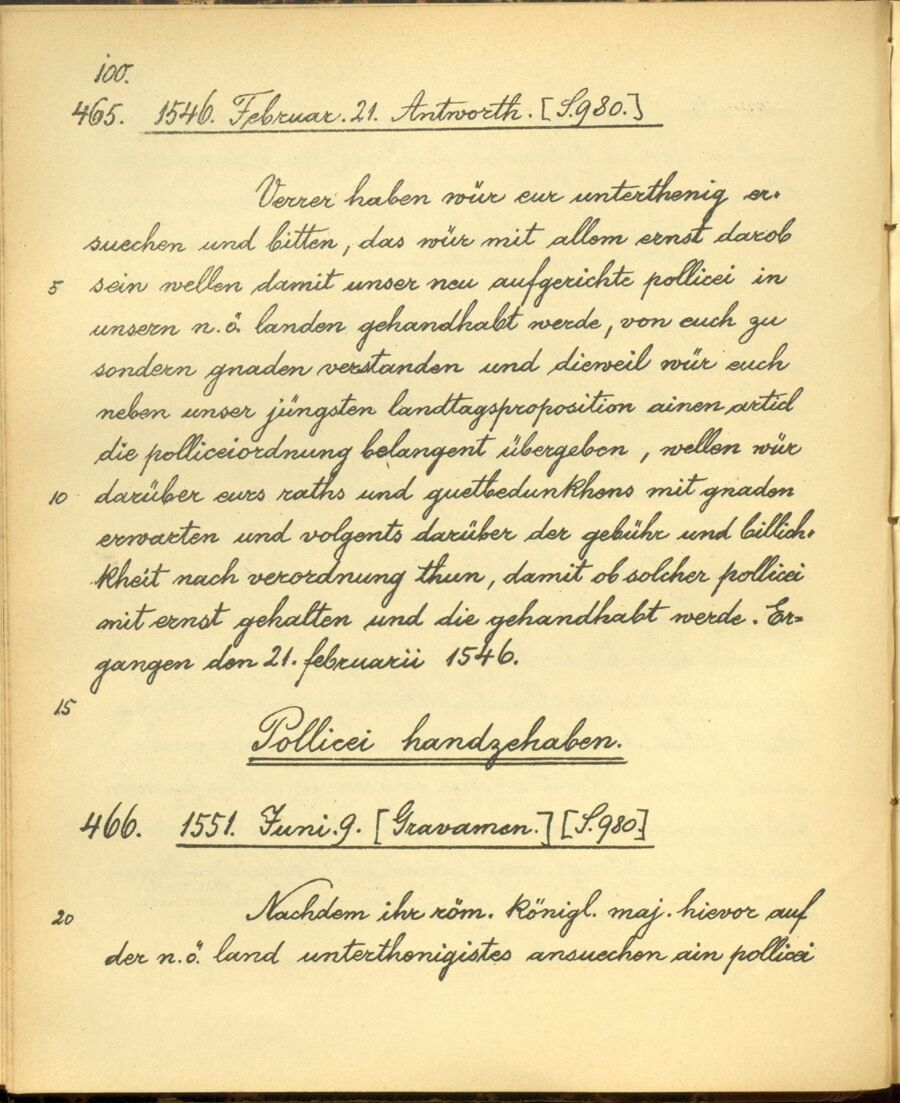 100.
465. 1546. Februar. 21. Antworth. [S.980.]
Verrer haben wür eur unterthenig er-
suechen und bitten, das wür mit allem ernst darob
5 sein wellen damit unser neu aufgerichte pollicei in
unsern n.ö. landen gehandhabt werde, von euch zu
sondern gnaden verstanden und dieweil wür euch
neben unser jüngsten landtagsproposition ainen articl
die polliceiordnung belangent übergeben, wellen wür
10 darüber eurs raths und guetbedunkhens mit gnaden
erwarten und volgents darüber der gebühr und billich-
kheit nach verordnung thun, damit ob solcher pollicei
mit ernst gehalten und die gehandhabt werde. Er=
gangen den 21. februarii 1546.
15
Pollicei handzehaben.
466. 1551. Juni. 9. [Gravamen.] [S.980.]
20 Nachdem ihr röm. königl. maj. hievor auf
der n.ö. land unterthenigistes ansuechen ain pollicei